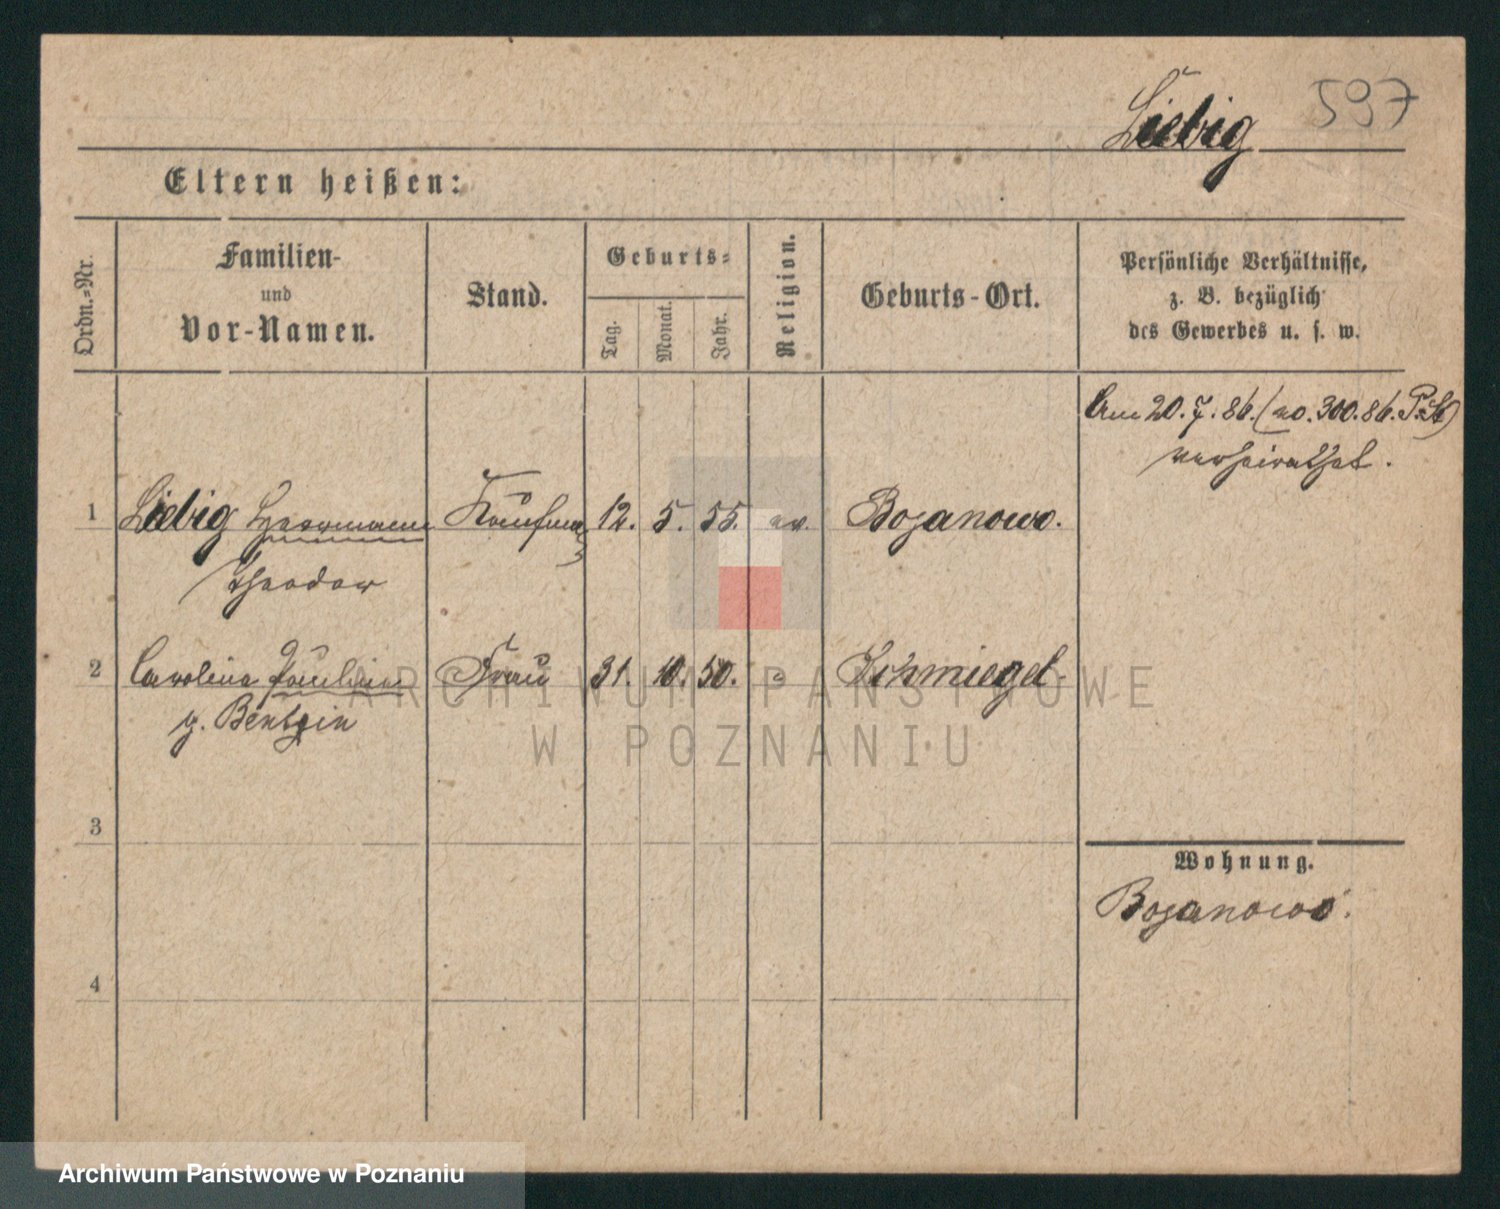 Liebig 597
Eltern heißen:
Ordn.=Nr.
Familien-
und
Vor-Namen.
Stand.
Geburts=
Tag.
Monat.
Jahr.
Religion.
Geburts-Ort.
Persönliche Verhältnisse,
z. B. bezüglich
des Gewerbes u. s. w.
Am 20.7.86. (no. 300.86. P.St)
verheirathet.
1 Liebig Herrmann Kaufman 12. 5. 55. ev. Bojanowo.
Theodor
2 Carolina Pauline Frau 31. 10. 50. " Schmiegel.
g. Bentzin
3
4
Wohnung.
Bojanowo.
ARCHIWUM PAŃSTWOWE
W POZNANIU
Archiwum Państwowe w Poznaniu